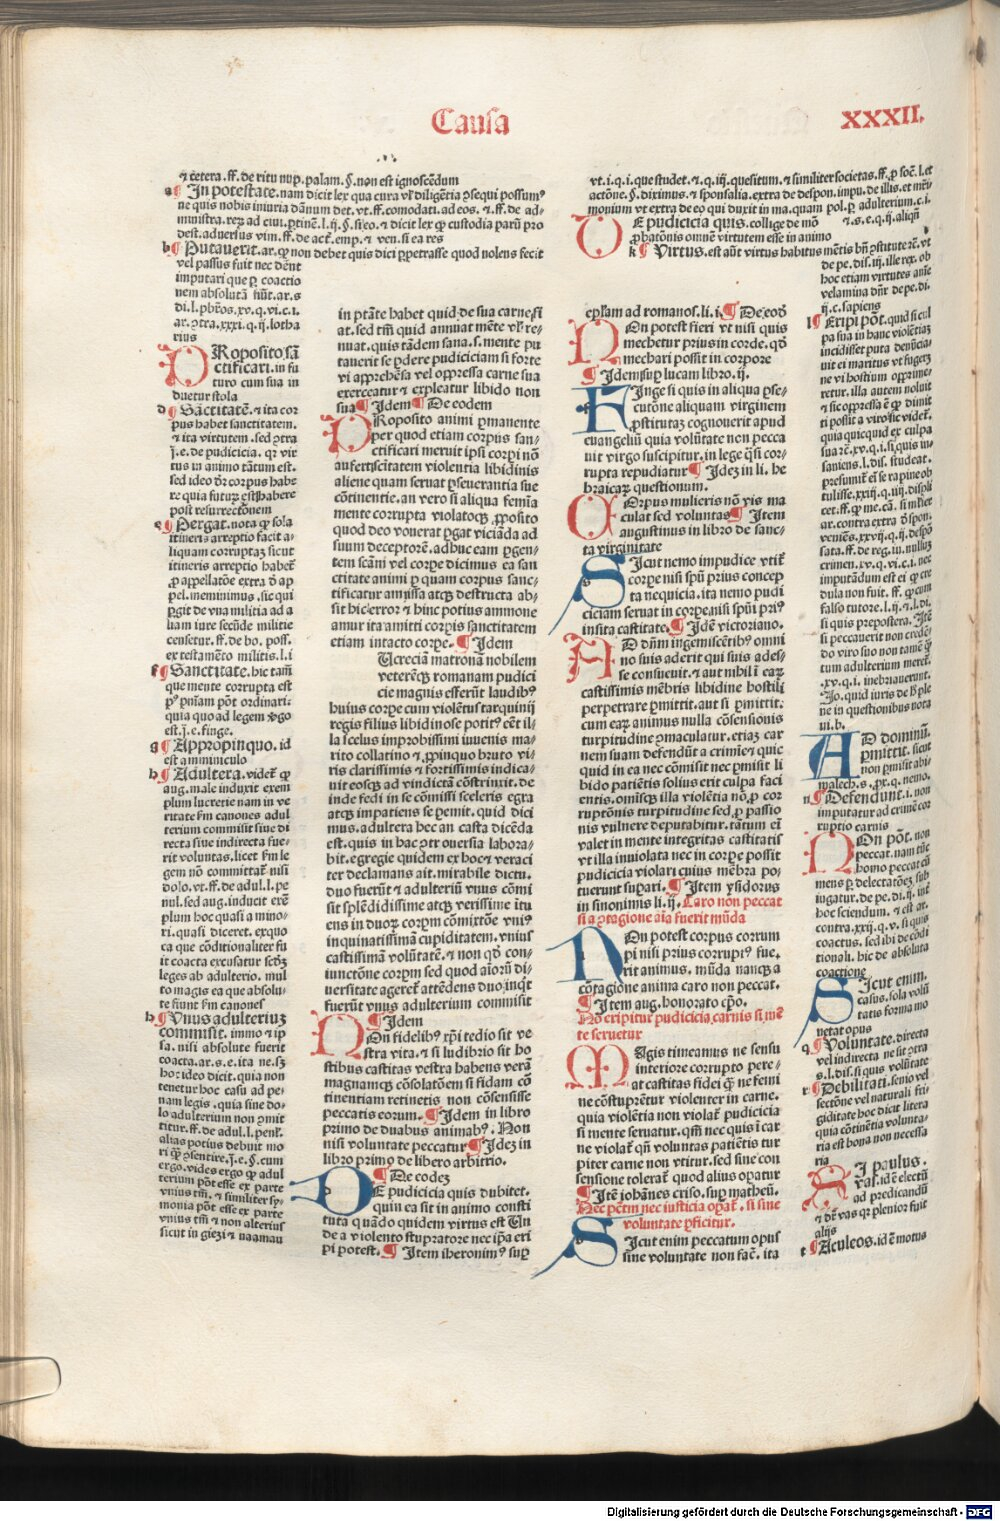 Causa
XXXII.
⁊ cetera. ff. de ritu nup. palam. §. non est ignoscēdum
a ¶ In potestate. nam dicit lex qua cura vl' diligētia ꝓsequi possum⁹
ne quis nobis iniuria dānum det. vt. ff. comodati. ad eos. ⁊. ff. de ad-
b ¶ Putauerit. ar. ꝙ non debet quis dici ꝑpetrasse quod nolens fecit
vel passus fuit nec dēnt
imputari que ꝑ coactio
rius
PRoposito sā
ctificari. in fu
turo cum sua in
duetur stola
d ¶ Sāctitatē. ⁊ ita cor
pus habet sanctitatem.
⁊ ita virtutem. sed ꝯtra
tus in animo tātum est.
re quia futuꝝ est habere
post resurrectōnem
e ¶ Pergat. nota ꝙ sola
itineris arreptio facit a-
liquam corruptaꝫ sicut
itineris arreptio habet̄
pel. meminimus. sic qui
ꝑgit de vna militia ad a
liam iure secūde militie
censetur. ff. de ho. poss.
ex testamēto militis. l. i
f ¶ Sanctitate. hic tam̄
que mente corrupta est
quia quo ad legem ꝟgo
g ¶ Appropinquo. id
est a imminiculo
h ¶ Adultera. videt̄ ꝙ
aug. male induxit exem
plum lucretie nam in ve
ritate fm canones adul
terium commisit siue di
recta siue indirecta fue-
rit voluntas. licet fm le
gem nō committat̄. nisi
dolo. vt. ff. de adul. l. pe
nul. sed aug. inducit exē
plum hoc quasi a mino-
ri. quasi diceret. ex quo
ca que cōditionaliter fu
it coacta excusatur scd̄ꝫ
leges ab adulterio. mul
to magis ea que absolu-
te siunt fm canones
h ¶ Vnus adulteriuꝫ
commisit. immo ⁊ ip
sa. nisi absolute fuerit
coacta. ar. s. e. ita ne. sꝫ
hoc ideo dicit. quia non
tenetur hoc casu ad pe-
nam legis. quia sine do-
lo adulterium non ꝯmit
titur. ff. de adul. l. penl̄.
alias potius debuit mo
ergo. vides ergo ꝙ adul
terium pōt esse ex parte
vnius tm̄. ⁊ similiter sy-
monia pōt esse ex parte
vnius tm̄ ⁊ non alterius
sicut in giezi ⁊ naaman
in ptāte habet quid de sua carne fi
at. sed tm̄ quid annuat mēte vl' re-
nuat. quis tādem sana. s. mente pu
tauerit se ꝑdere pudiciciam si forte
vi apprehēsa vel oppressa carne sua
exerceatur ⁊ expleatur libido non
sua ¶ Idem ¶ De eodem
PRoposito animi ꝑmanente
per quod etiam corpus san-
ctificari meruit ipsi corpi nō
aufert scītatem violentia libidinis
aliene quam seruat ꝑseuerantia sue
cōtinentie. an vero si aliqua femīa
mente corrupta violatoqꝫ ꝓposito
quod deo vouerat ꝑgat viciāda ad
suum deceptorē. adhuc eam ꝑgen-
tem scāni vel corpe dicimus ea san
ctitate animi ꝑ quam corpus sanc-
tificatur amissa atqꝫ destructa ab-
sit hic error ⁊ hinc potius ammone
amur ita amitti corpis sanctitatem
etiam intacto corpe. ¶ Idem
Ucreciā matronā nobilem
veterēqꝫ romanam pudici
cie magnis efferūt laudib⁹
huius corpe cum violētus tarquinij
regis filius libidinose potit⁹ eēt il-
la scelus improbissimi iuuenis ma-
rito collatino ⁊ ꝓpinquo bruto vi-
ris clarissimis ⁊ fortissimis indica-
uit eosqꝫ ad vindictā cōstrinxit. de
inde fedi in se cōmissi sceleris egra
atqꝫ impatiens se ꝑemit. quid dici
mus. adultera hec an casta dicēda
est. quis in hac ꝯtrouersia labora-
bit. egregie quidem ex hoc ⁊ veraci
ter declamans ait. mirabile dictu.
duo fuerūt ⁊ adulteriū vnus cōmi
sit splēdidissime atqꝫ verissime itu
ens in duoꝝ corpꝝ cōmixtōe vni⁹
inquinatissimā cupiditatem. vnius
castissimā volūtatē. ⁊ non qd̄ con-
iunctōne corpm̄ sed quod aīorū di-
uersitate ageret̄ attēdens duo inqt̄
fuerūt vnus adulterium commisit
¶ Idem
NOn fidelib⁹ xp̄i tedio sit ve
stra vita. ⁊ si ludibrio sit ho
stibus castitas vestra habens verā
magnamqꝫ cōsolatōem si fidam cō
tinentiam retinetis non cōsensisse
peccatis eorum. ¶ Idem in libro
primo de duabus animab⁹. Non
nisi voluntate peccatur ¶ Idez in
libro primo de libero arbitrio.
¶ De codez
DE pudicicia quis dubitet.
quin ea sit in animo consti
tuta quādo quidem virtus est Un
de a violento stupratore nec ip̄a eri
pi potest. ¶ Item iheronim⁹ suꝑ
vt. i. q. i. que studet. ⁊ q. iij. quesitum. ⁊ similiter societas. ff. ꝓ soc̄. l. et
actōne. §. diximus. ⁊ sponsalia. extra de despon. impu. de illis. et mr̄i
monium vt extra de eo qui duxit in ma. quam pol. ꝑ adulterium. c. i.
DE pudicicia quis. collige de mō ⁊. s. e. q. ij. aliqn̄
ꝓbatōnis omnē virtutem esse in animo
k ¶ Virtus. est aūt virtus habitus mētis bn̄ ꝯstitute rē. vt
de pe. dis. iij. ille rex. ob
hoc etiam virtutes anīe
velamina dn̄r de pe. di.
ij. c. sapiens
l ¶ Eripi pōt. quid si cul
pa sua in hanc violētiaꝫ
incidisset puta denūcia-
uit ei maritus vt fugeꝫ
ne vi hostium opprime-
retur. illa autem noluit
⁊ sic oppressa ē ꝙ dimit
ti possit a viro sic videt̄.
quia quicquid ex culpa
saniens. l. dis. studeat.
tulisse. xxiij. q. iiij. displi
cet. ff. qͥ me. cā. si mulier
ar. contra extra d̄ spon.
veniēs. xxv. q. ij. despō
sata. ff. de reg. iu. nulluꝫ
crimen. xv. q. vi. c. i. nec
imputādum est ei ꝙ cre
dula non fuit. ff. ꝙ cum
falso tutore. l. ij. ⁊. l. di.
si quis prepostera. Itē
si peccauerit non credē-
do viro suo non tamē ꝙ
tum adulterium meret̄.
xv. q. i. inebriauerunt.
ne in questionibus nota
ui. h.
AD dominū.
ꝑmittit. sicut
non ꝑmisit abi-
malech. s. ꝓx. q. nemo.
n ¶ Defendunt. i. non
imputatur ad crimē cor
ruptio carnis
NOn pōt. non
peccat. nam tūc
homo peccat cū
mens ꝑ delectatōeꝫ sub
iugatur. de pe. di. ij. int̄
hoc sciendum. ⁊ est ar.
contra. xxij. q. v. si quis
coactus. sed ibi de cōdi
tionali. hic de absoluta
coactione
SIcut enim.
casus. sola volū
tatis forma mo
netat opus
q ¶ Voluntate. directa
vel indirecta ne sit ꝯtra
s. l. dis. si quis volūtate
r ¶ Debilitati. senio vel
sectōne vel naturali fri-
giditate hoc dicit litera
quia cōtinētia volunta-
ria est bona non necessa
ria
SI paulus.
vas. id ē electū
ad predicandū
⁊ dr̄ vas qꝛ plenior fuit
alijs
t ¶ Aculeos. id ē motus
ep̄lam ad romanos. li. i. ¶ De eodē
NOn potest fieri vt nisi quis
mechetur prius in corde. qd̄
mechari possit in corpore
¶ Idem suꝑ lucam libro. ij.
FInge si quis in aliqua ꝑse-
cutōne aliquam virginem
ꝓstitutaꝫ cognouerit apud
euangeliū quia volūtate non pecca
uit virgo suscipitur. in lege q̄si cor-
rupta repudiatur ¶ Idez in li. he
braicaꝝ questionum.
COrpus mulieris nō vis ma
culat sed voluntas ¶ Item
augustinus in libro de sanc-
ta virginitate
SIcut nemo impudice vtit̄
corpe nisi spū prius concep
ta nequicia. ita nemo pudi
ciciam seruat in corpe nisi spū pri⁹
insita castitate. ¶ Idē victoriano.
AD dn̄m ingemiscētib⁹ omni
no suis aderit qui suis ades-
se consueuit. ⁊ aut nihil ī eaꝝ
castissimis mēbris libidine hostili
perpetrare ꝑmittit. aut si ꝑmittit.
cum eaꝝ animus nulla cōsensionis
turpitudine ꝯmaculatur. etiaꝫ car
nem suam defendūt a crimīe ⁊ quic
quid in ea nec cōmisit nec ꝑmisit li
bido patiētis solius erit culpa faci
entis. omīsqꝫ illa violētia nō ꝓ cor
ruptōnis turpitudine sed ꝓ passio
nis vulnere deputabitur. tātum eī
valet in mente integritas castitatis
vt illa inuiolata nec in corpe possit
pudicicia violari cuius mēbra po-
tuerunt supari. ¶ Item ysidorus
in sinonimis li. ij. Caro non peccat
si a ꝯtagione aīa fuerit mūda
NOn potest corpus corrum
pi nisi prius corrupt⁹ fue-
rit animus. mūda nanqꝫ a
cōtagione anima caro non peccat.
¶ Item aug. honorato ep̄o.
No eripitur pudicicia carnis si mē
te seruetur
MAgis timeamus ne sensu
interiore corrupto pere-
at castitas fidei ꝙ̄ ne femi
ne cōstuprētur violenter in carne.
quia violētia non violat̄ pudicicia
si mente seruatur. qm̄ nec quis ī car
ne violat̄ qn̄ voluntas patiētis tur
piter carne non vtitur. sed sine con
sensione tolerat̄ quod alius oꝑatur
¶ Itē johānes criso. suꝑ matheū.
Nec pctm̄ nec iusticia oꝑat̄. si sine
voluntate ꝑficitur.
SIcut enim peccatum opus
sine voluntate non facit. ita
Digitalisierung gefördert durch die Deutsche Forschungsgemeinschaft - DFG